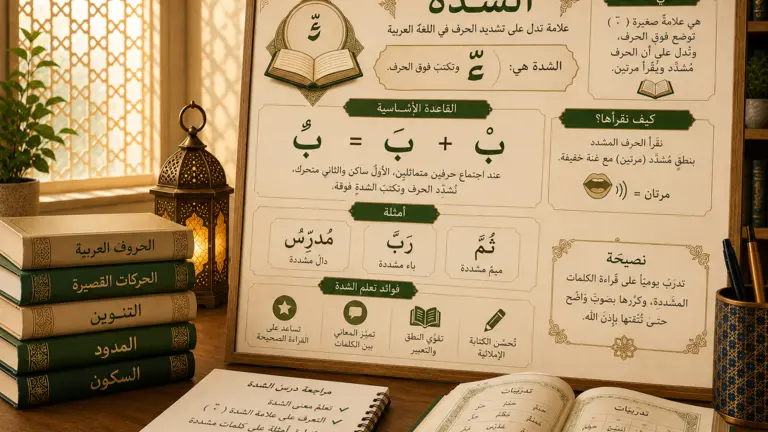 الشدة
علامة تدل على تشديد الحرف في اللغة العربية
الشدة هي:
وتكتب فوق الحرف.
هي علامةٌ صغيرة
توضع فوق الحرف،
وتُدل على أن الحرف
مُشدَّد ويُقْرأ مرتين.
القاعدة الأساسية
بْ + بَ =
عند اجتماع حرفين متماثلين، الأولُ ساكن والثاني متحرك،
نُشدِّد الحرف وتكتب الشدةِ فوقة.
كيف نقرأها؟
نقرأ الحرف المشدد
بنطقٍ مُشدَّد (مرتين) مع غنة خفيفة.
مرتان =
أمثلة
ثُمَّ
ميمُ مشددة
رَبَّ
باء مشددة
مُدرّسُ
دالُ مشددة
نصيحَة
تدرَبْ يومياً على قراءة الكلمات
المشددة، وكرَّرها بصوتٍ وَاضْح
حتىَ تُتْقتها بإذن الله.
فوائد تعلم الشدة
تُحسّن الكتابة
الإملائية
تقوّي النطق
والتعبير
تميّز المعاني
بين الكلمات
تساعد على
القراءة الصحيحة
الحروف العربية
الحركات القصيرة
التنوين
المدود
السكون
مراجعة درس الشدة
تعلم معنى الشدة
التعرف على علامة الشدة
أمثلة على كلمات مشددة
تدريبات
تدريبات